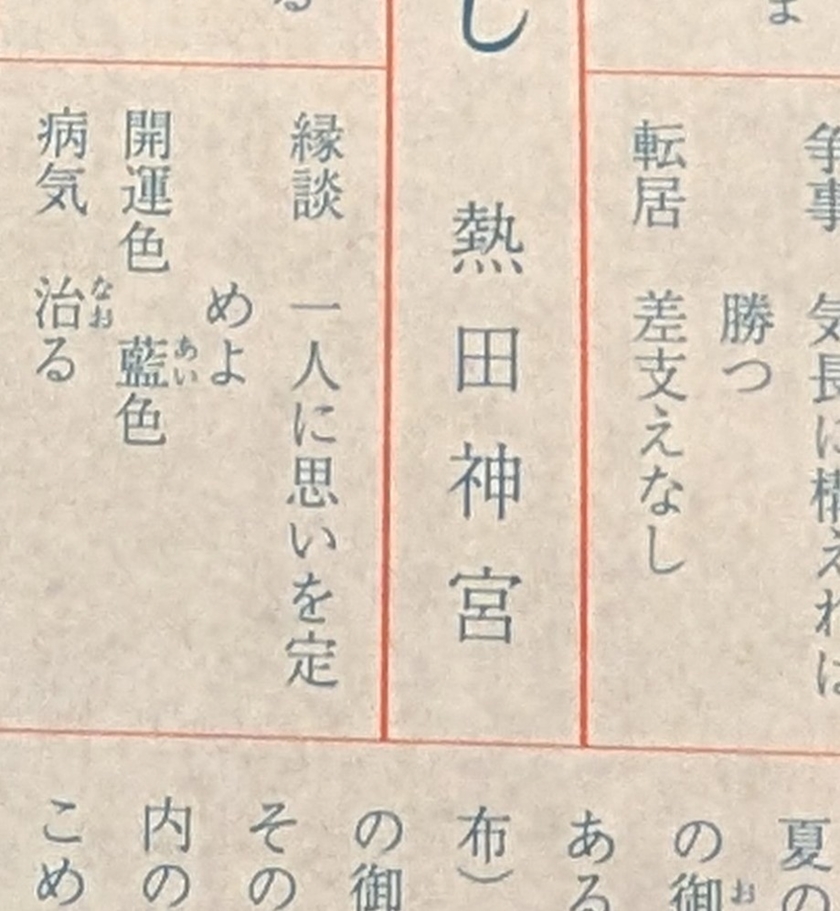 争事　気長に構えれば
勝つ
転居　差支えなし
し　熱田神宮
縁談　一人に思いを定
めよ
開運色　藍色
あい
病気　治る
なお
夏の
の御
お
ある
布）
の御
その
内の
こめ